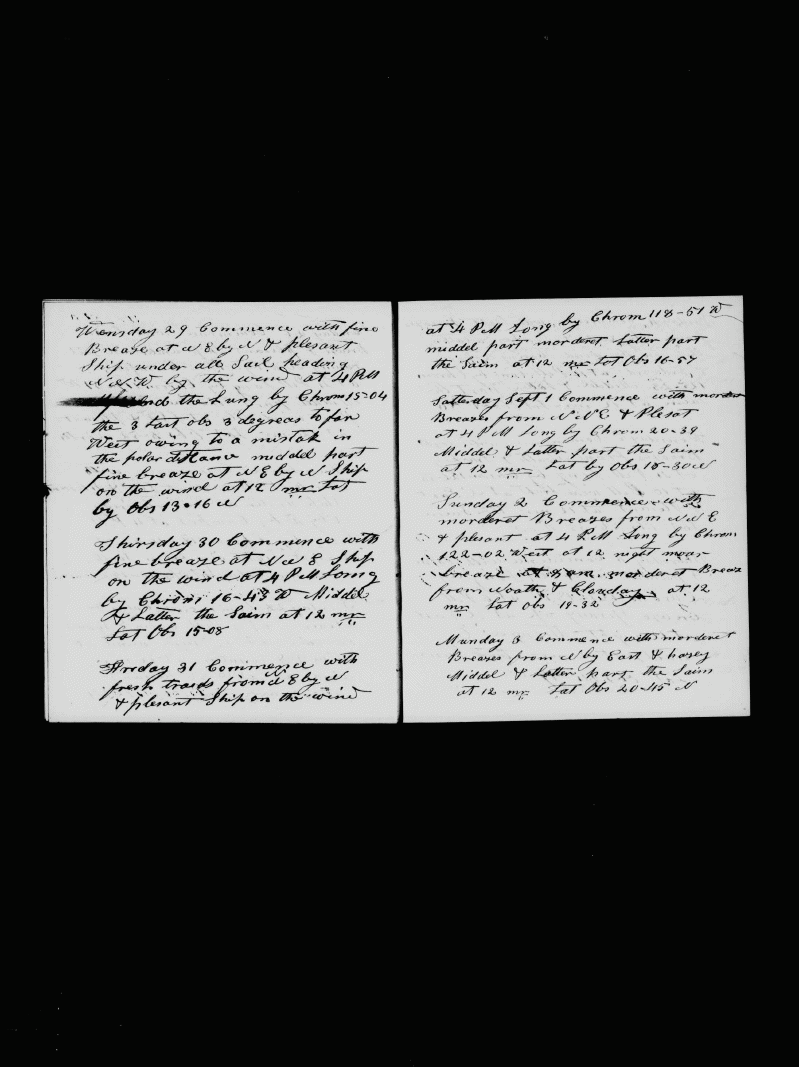 Wensday 29 Commence with fine
Breaze at N E by N & plesant
Ship under all Sail heading
N N W by the wind at 4 PM
the Lung by Chrom 15-04
the 3 last obs 3 degreas to far
West owing to a mistak in
the polar distance middel part
fine breaze at N E by N Ship
on the wind at 12 mr Lat
by Obs 13-16 N
Thirsday 30 Commence with
fine breaze at N N E Ship
on the wind at 4 PM Long
by Chrom 16-43 W Middel
& Latter the Saim at 12 mr
Lat Obs 15-08
Friday 31 Commence with
fresh traids from N E by N
& plesant Ship on the wind
at 4 PM Long by Chrom 118-51 W
middel part morderet Latter part
the Saim at 12 mr Lat Obs 16-57
Satterday Sept 1 Commence with morderet
Breazes from N N E & Plesat
at 4 PM Long by Chrom 20-39
Middel & Latter part the Saim
at 12 mr Lat by Obs 18-30 N
Sunday 2 Commence with
morderet Breazes from N N E
& plesant at 4 PM Long by Chrom
122-02 West at 12 night moar
breaze at 8 am morderet Breaz
from North & Clouday at 12
mr Lat Obs 19-32
Munday 3 Commence with morderet
Breazes from N by East & hazey
Middel & Latter part the Saim
at 12 mr Lat Obs 20-45 N